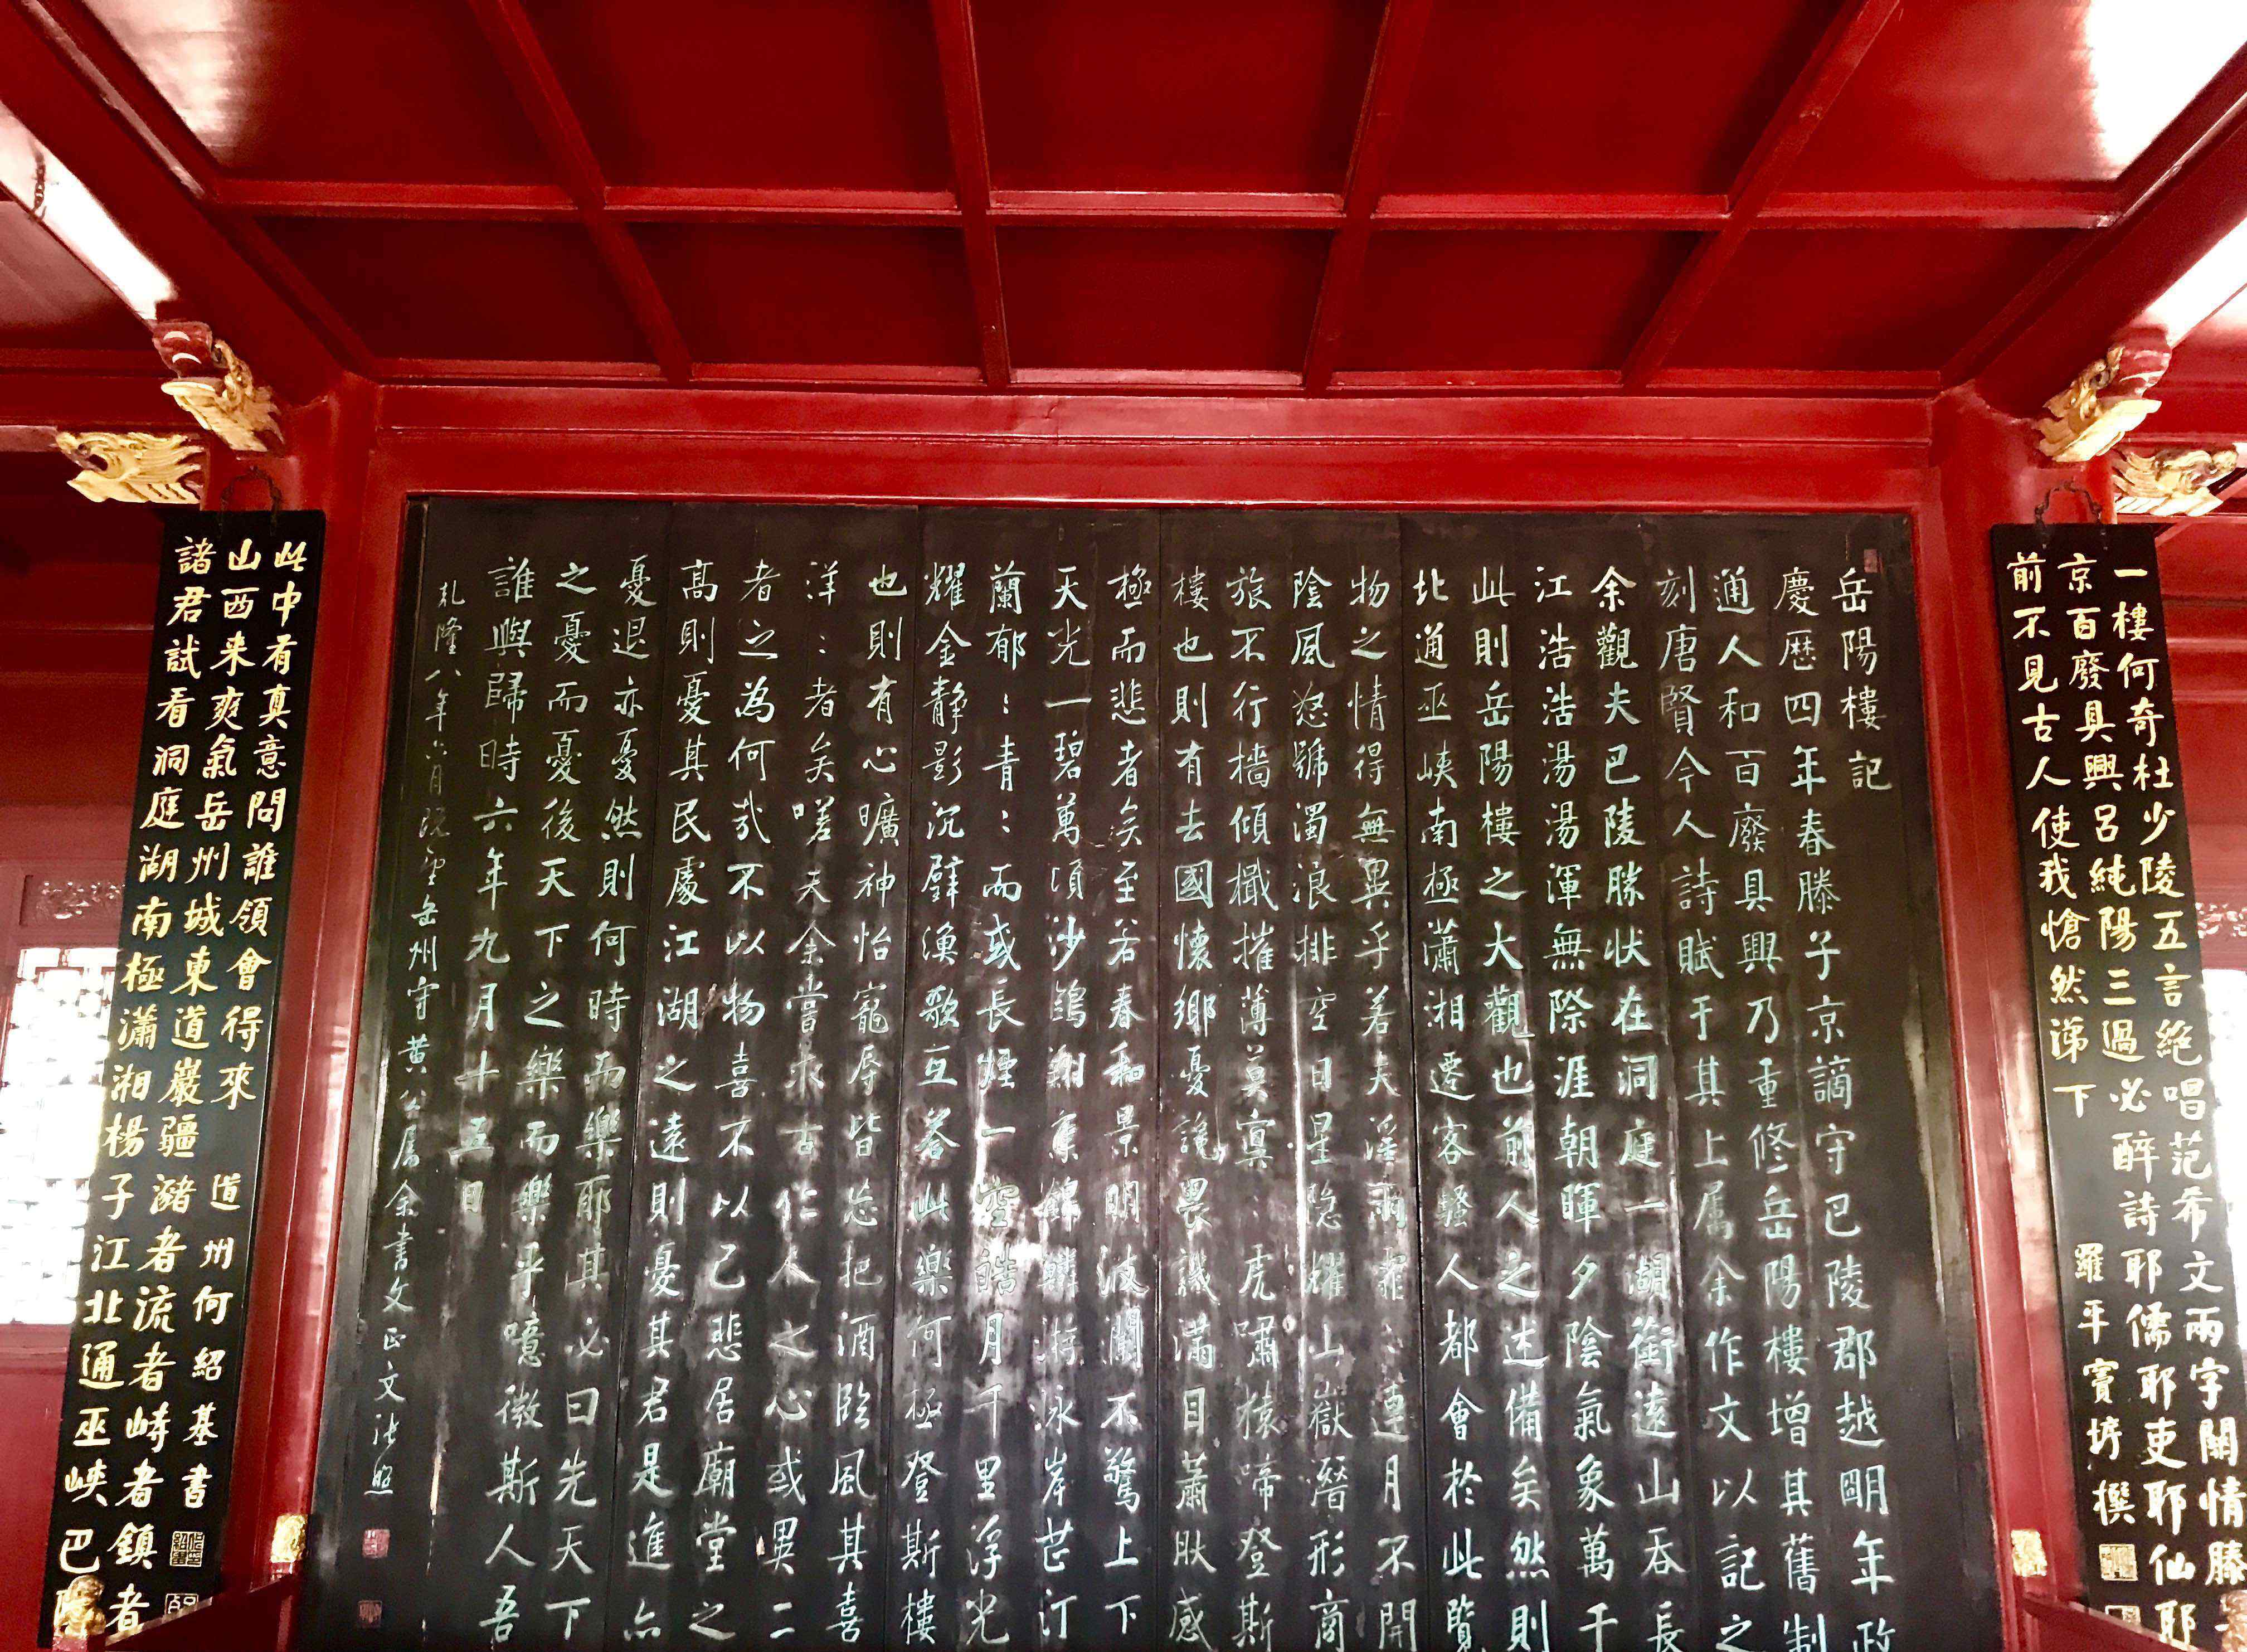 一樓何奇杜少陵五言絕唱范希文兩字關情滕
京百廢具興呂純陽三過必醉詩耶儒耶吏耶仙耶
前不見古人使我愴然涕下
羅平竇垿撰
岳陽樓記
慶歷四年春滕子京謫守巴陵郡越明年政
通人和百廢具興乃重修岳陽樓增其舊制
刻唐賢今人詩賦于其上属余作文以記之
余觀夫巴陵勝状在洞庭一湖銜遠山吞長
江浩浩湯湯渾無際涯朝暉夕陰氣象萬千
此則岳陽樓之大觀也前人之述備矣然則
北通巫峽南極瀟湘遷客騷人都會於此覽
物之情得無異乎若夫淫雨霏:連月不開
陰風怒號濁浪排空日星隐耀山嶽潛形商
旅不行檣傾檝摧薄莫冥:虎嘯猿啼登斯
樓也則有去國懷鄉憂讒畏譏滿目蕭肰感
極而悲者矣至若春和景明波瀾不驚上下
天光一碧萬頃沙鷗翔集錦鱗游泳岸芷汀
蘭郁:青:而或長煙一空皓月千里浮光
耀金静影沉璧漁歌互荅此樂何極登斯樓
也則有心曠神怡寵辱皆忘把酒臨風其喜
洋:者矣嗟夫余嘗求古仁人之心或異二
者之為何哉不以物喜不以己悲居廟堂之
高則憂其民處江湖之遠則憂其君是進亦
憂退亦憂然則何時而樂耶其必曰先天下
之憂而憂後天下之樂而樂乎噫微斯人吾
誰與歸時六年九月十五日
乾隆八年六月既望岳州守黄公属余書文正文張照
此中有真意問誰領會得來
道州何紹基書
山西来爽氣岳州城東道巖疆瀦者流者峙者鎮者
諸君試看洞庭湖南極瀟湘楊子江北通巫峽巴陵